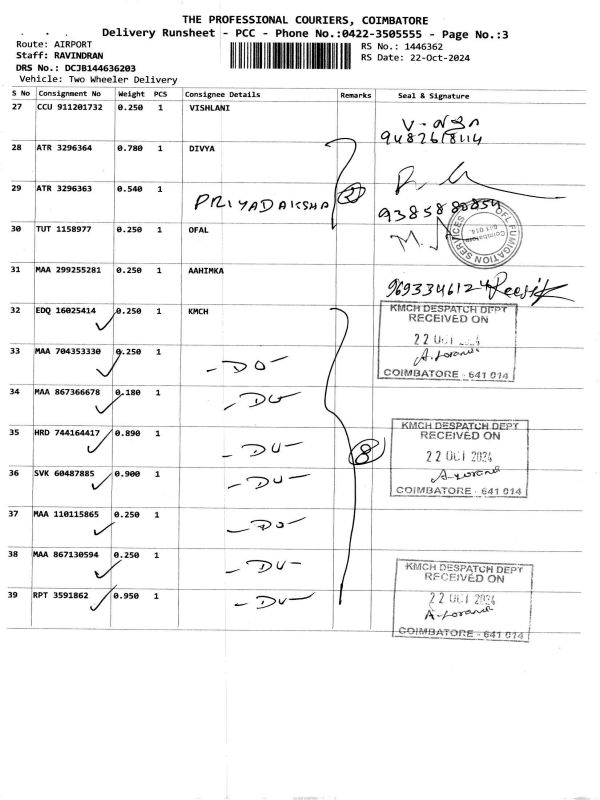 THE PROFESSIONAL COURIERS, COIMBATORE
Delivery Runsheet - PCC - Phone No.:0422-3505555 - Page No.:3
Route: AIRPORT
Staff: RAVINDRAN
DRS No.: DCJB144636203
Vehicle: Two Wheeler Delivery
RS No.: 1446362
RS Date: 22-Oct-2024
S No Consignment No Weight PCS Consignee Details Remarks Seal & Signature
27 CCU 911201732 0.250 1 VISHLANI
28 ATR 3296364 0.780 1 DIVYA
29 ATR 3296363 0.540 1 PRIYADAKSHA
30 TUT 1158977 0.250 1 OFAL
OFL FUMIGATION SERVICES
Coimbatore
641 014.
31 MAA 299255281 0.250 1 AAHIMKA
9693346124
32 EDQ 16025414 0.250 1 KMCH
KMCH DESPATCH DEPT
RECEIVED ON
22 OCT 2024
COIMBATORE - 641 014
33 MAA 704353330 0.250 1 - DO -
34 MAA 867366678 0.180 1 - DO -
35 HRD 744164417 0.890 1 - DO - 8
KMCH DESPATCH DEPT
RECEIVED ON
22 OCT 2024
COIMBATORE - 641 014
36 SVK 60487885 0.900 1 - DO -
37 MAA 110115865 0.250 1 - DO -
38 MAA 867130594 0.250 1 - DO -
KMCH DESPATCH DEPT
RECEIVED ON
22 OCT 2024
COIMBATORE - 641 014
39 RPT 3591862 0.950 1 - DO -